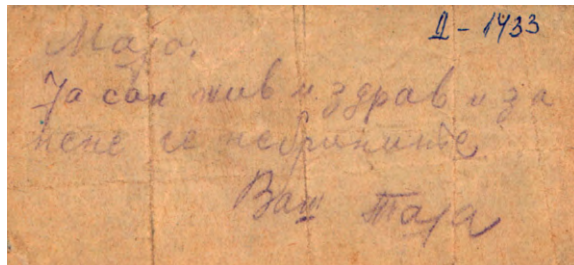 Д - 1433
Мајо,
Ја сам жив и здрав и за
мене се не брините
Ваш Таја